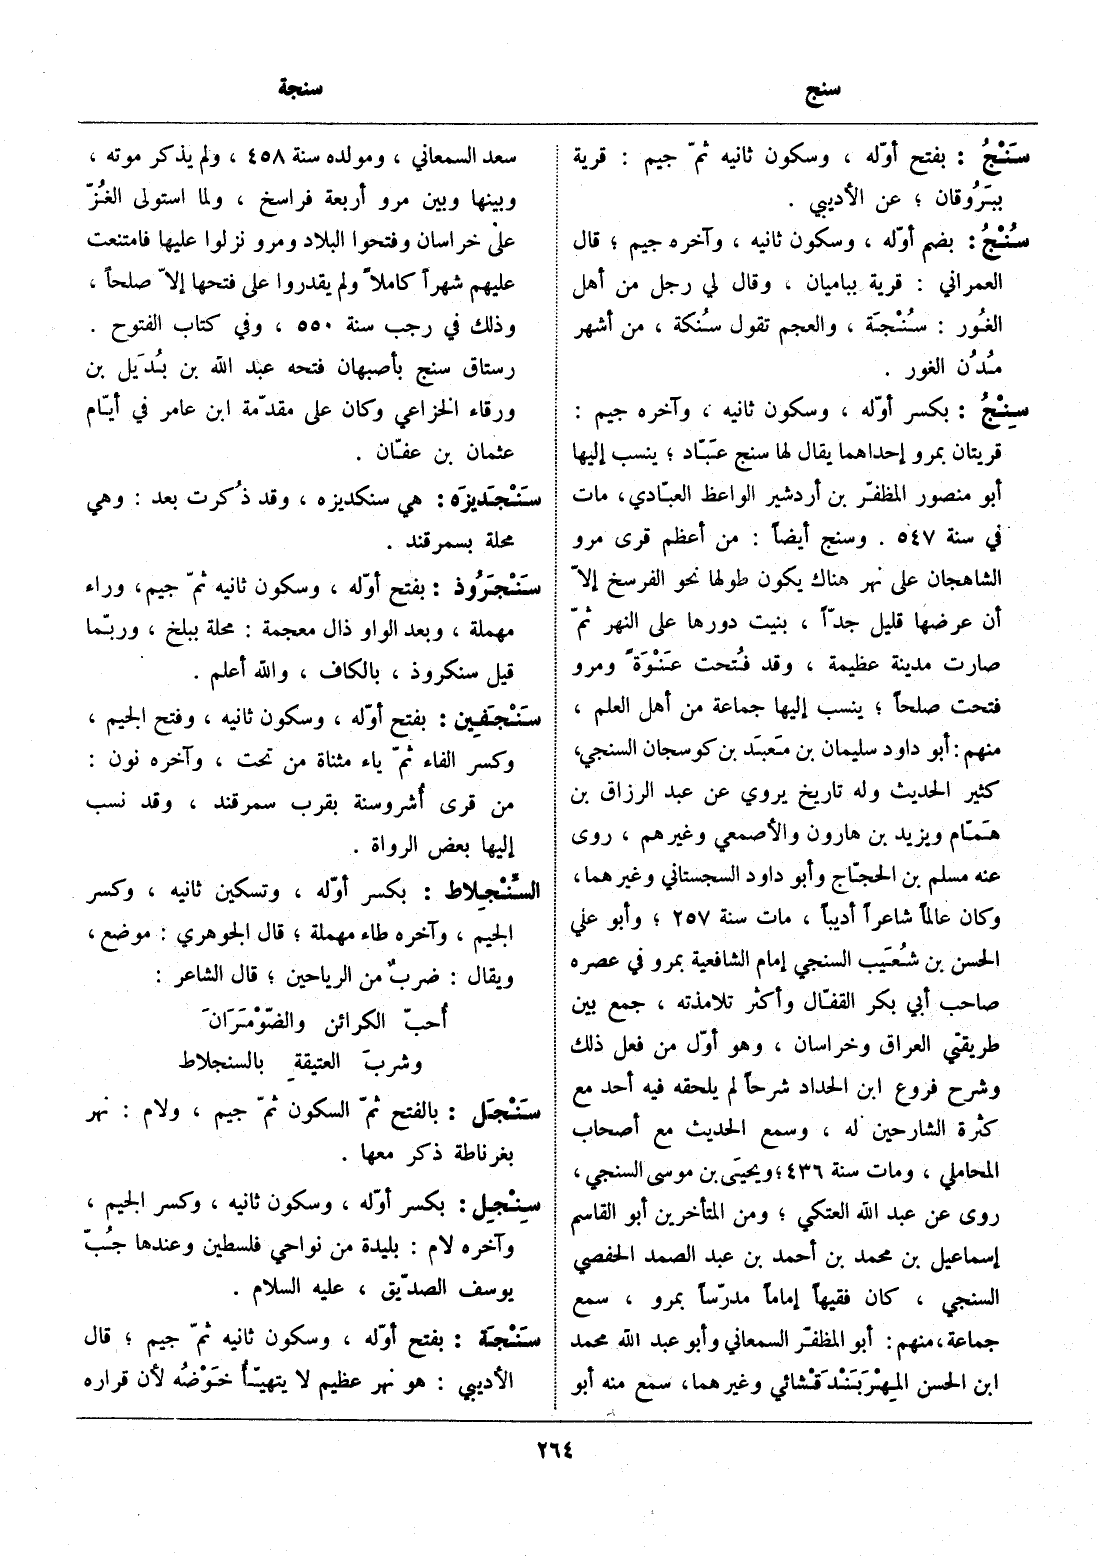 سنج
سنجة
سَنْجُ : بفتح أوّله ، وسكون ثانيه ثمّ جيم : قرية
ببَرُوقان ؛ عن الأديبي .
سُنْجُ : بضم أوّله ، وسكون ثانيه ، وآخره جيم ؛ قال
العمراني : قرية بباميان ، وقال لي رجل من أهل
الغُور : سُنْجَة ، والعجم تقول سُنكة ، من أشهر
مُدُن الغور .
سِنْجُ : بكسر أوّله ، وسكون ثانيه ، وآخره جيم :
قريتان بمرو إحداهما يقال لها سنج عَبّاد ؛ ينسب إليها
أبو منصور المظفّر بن أردشير الواعظ العبّادي، مات
في سنة ٥٤٧ . وسنج أيضاً : من أعظم قرى مرو
الشاهجان على نهر هناك يكون طولها نحو الفرسخ إلاّ
أن عرضها قليل جدّاً ، بنيت دورها على النهر ثمّ
صارت مدينة عظيمة ، وقد فُتحت عَنْوَةً ومرو
فتحت صلحاً ؛ ينسب إليها جماعة من أهل العلم ،
منهم: أبو داود سليمان بن مَعبَد بن كوسجان السنجي،
كثير الحديث وله تاريخ يروي عن عبد الرزاق بن
هَمّام ويزيد بن هارون والأصمعي وغيرهم ، روى
عنه مسلم بن الحجّاج وأبو داود السجستاني وغيرهما،
وكان عالماً شاعراً أديباً ، مات سنة ٢٥٧ ؛ وأبو علي
الحسن بن شُعَيب السنجي إمام الشافعية بمرو في عصره
صاحب أبي بكر القفّال وأكثر تلامذته ، جمع بين
طريقتي العراق وخراسان ، وهو أوّل من فعل ذلك
وشرح فروع ابن الحداد شرحاً لم يلحقه فيه أحد مع
كثرة الشارحين له ، وسمع الحديث مع أصحاب
المحاملي ، ومات سنة ٤٣٦؛ ويحيَى بن موسى السنجي ،
روى عن عبد الله العتكي ؛ ومن المتأخرين أبو القاسم
إسماعيل بن محمد بن أحمد بن عبد الصمد الحفصي
السنجي ، كان فقيهاً إماماً مدرّساً بمرو ، سمع
جماعة،منهم: أبو المظفّر السمعاني وأبو عبد الله محمد
ابن الحسن المِهْرَبَنْدَقْشائي وغيرهما، سمع منه أبو
سعد السمعاني ، ومولده سنة ٤٥٨ ، ولم يذكر موته ،
وبينها وبين مرو أربعة فراسخ ، ولما استولى الغُزّ
على خراسان وفتحوا البلاد ومرو نزلوا عليها فامتنعت
عليهم شهراً كاملاً ولم يقدروا على فتحها إلاّ صلحاً ،
وذلك في رجب سنة ٥٥٠ ، وفي كتاب الفتوح .
رستاق سنج بأصبهان فتحه عبد الله بن بُدَيل بن
ورقاء الخزاعي وكان على مقدّمة ابن عامر في أيّام
عثمان بن عفّان .
سَنْجَديزَه: هي سنكديزه ، وقد ذُكرت بعد : وهي
محلة بسمرقند .
سَنْجَرُوذ : بفتح أوّله ، وسكون ثانيه ثمّ جيم، وراء
مهملة ، وبعد الواو ذال معجمة : محلة ببلخ ، وربّما
قيل سنكروذ ، بالكاف ، والله أعلم .
سَنْجَفِين : بفتح أوّله ، وسكون ثانيه ، وفتح الجيم ،
وكسر الفاء ثمّ ياء مثناة من تحت ، وآخره نون :
من قرى أُشروسنة بقرب سمرقند ، وقد نسب
إليها بعض الرواة .
السِّنْجِلاط : بكسر أوّله ، وتسكين ثانيه ، وكسر
الجيم ، وآخره طاء مهملة ؛ قال الجوهري : موضع ،
ويقال : ضربٌ من الرياحين ؛ قال الشاعر :
أُحبّ الكرائن والضَّوْمَرَانَ
وشربَ العتيقةِ بالسنجلاط
سَنْجَل : بالفتح ثمّ السكون ثمّ جيم ، ولام : نهر
بغرناطة ذكر معها .
سِنْجِل: بكسر أوّله ، وسكون ثانيه ، وكسر الجيم ،
وآخره لام : بليدة من نواحي فلسطين وعندها جُبّ
يوسف الصدّيق ، عليه السلام .
سَنْجَة : بفتح أوّله ، وسكون ثانيه ثمّ جيم ؛ قال
الأديبي : هو نهر عظيم لا يتهيّأُ خَوْضُه لأن قراره
٢٦٤